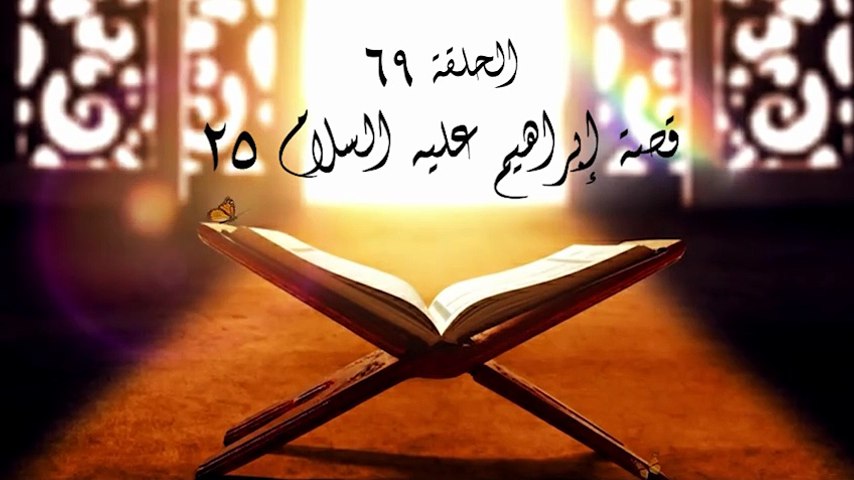 الحلقة ٦٩
قصة إبراهيم عليه السلام ٢٥